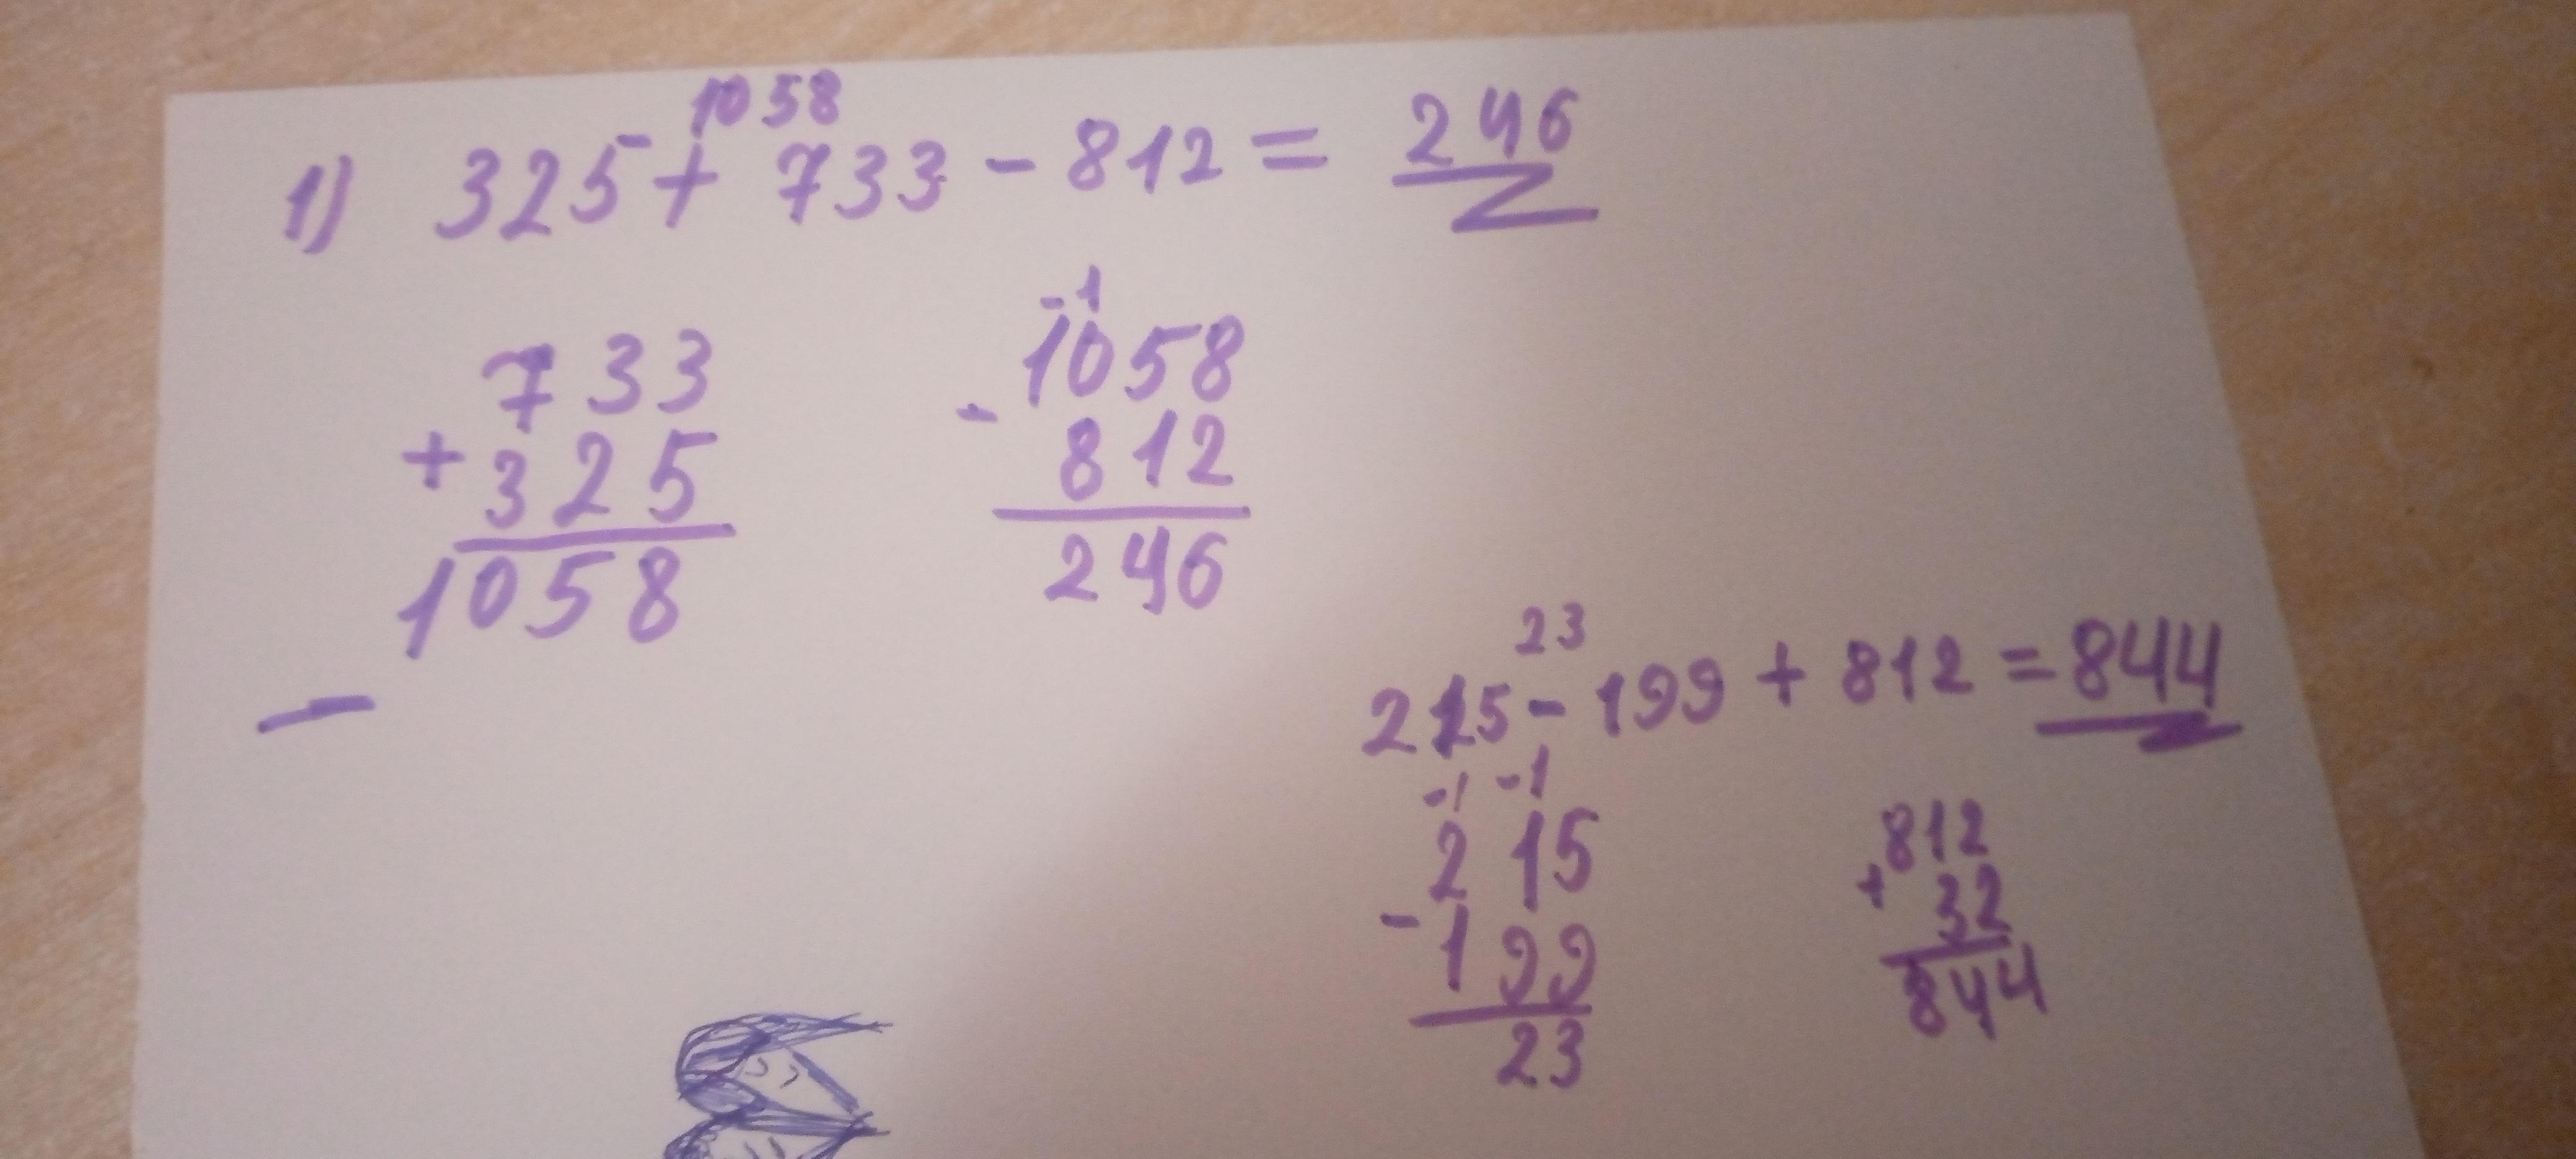 1058
1) 325 + 733 - 812 = 246
733
+ 325
1058
-1
1058
- 812
246
23
215 - 199 + 812 = 844
-1 -1
215
- 199
23
812
+ 32
844